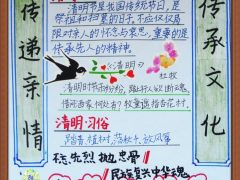 传递亲情
传承文化
清明节是我国传统节日，是
祭祖和扫墓的日子，不应仅仅局
限对亲人的怀念与哀思，重要的是
传承先人的精神。
《清明》
杜牧
清明时节雨纷纷，路上行人欲断魂。
借问酒家何处有？牧童遥指杏花村。
清明·习俗
踏青 植树、荡秋千、放风筝
忠骨
民族复兴中华魂